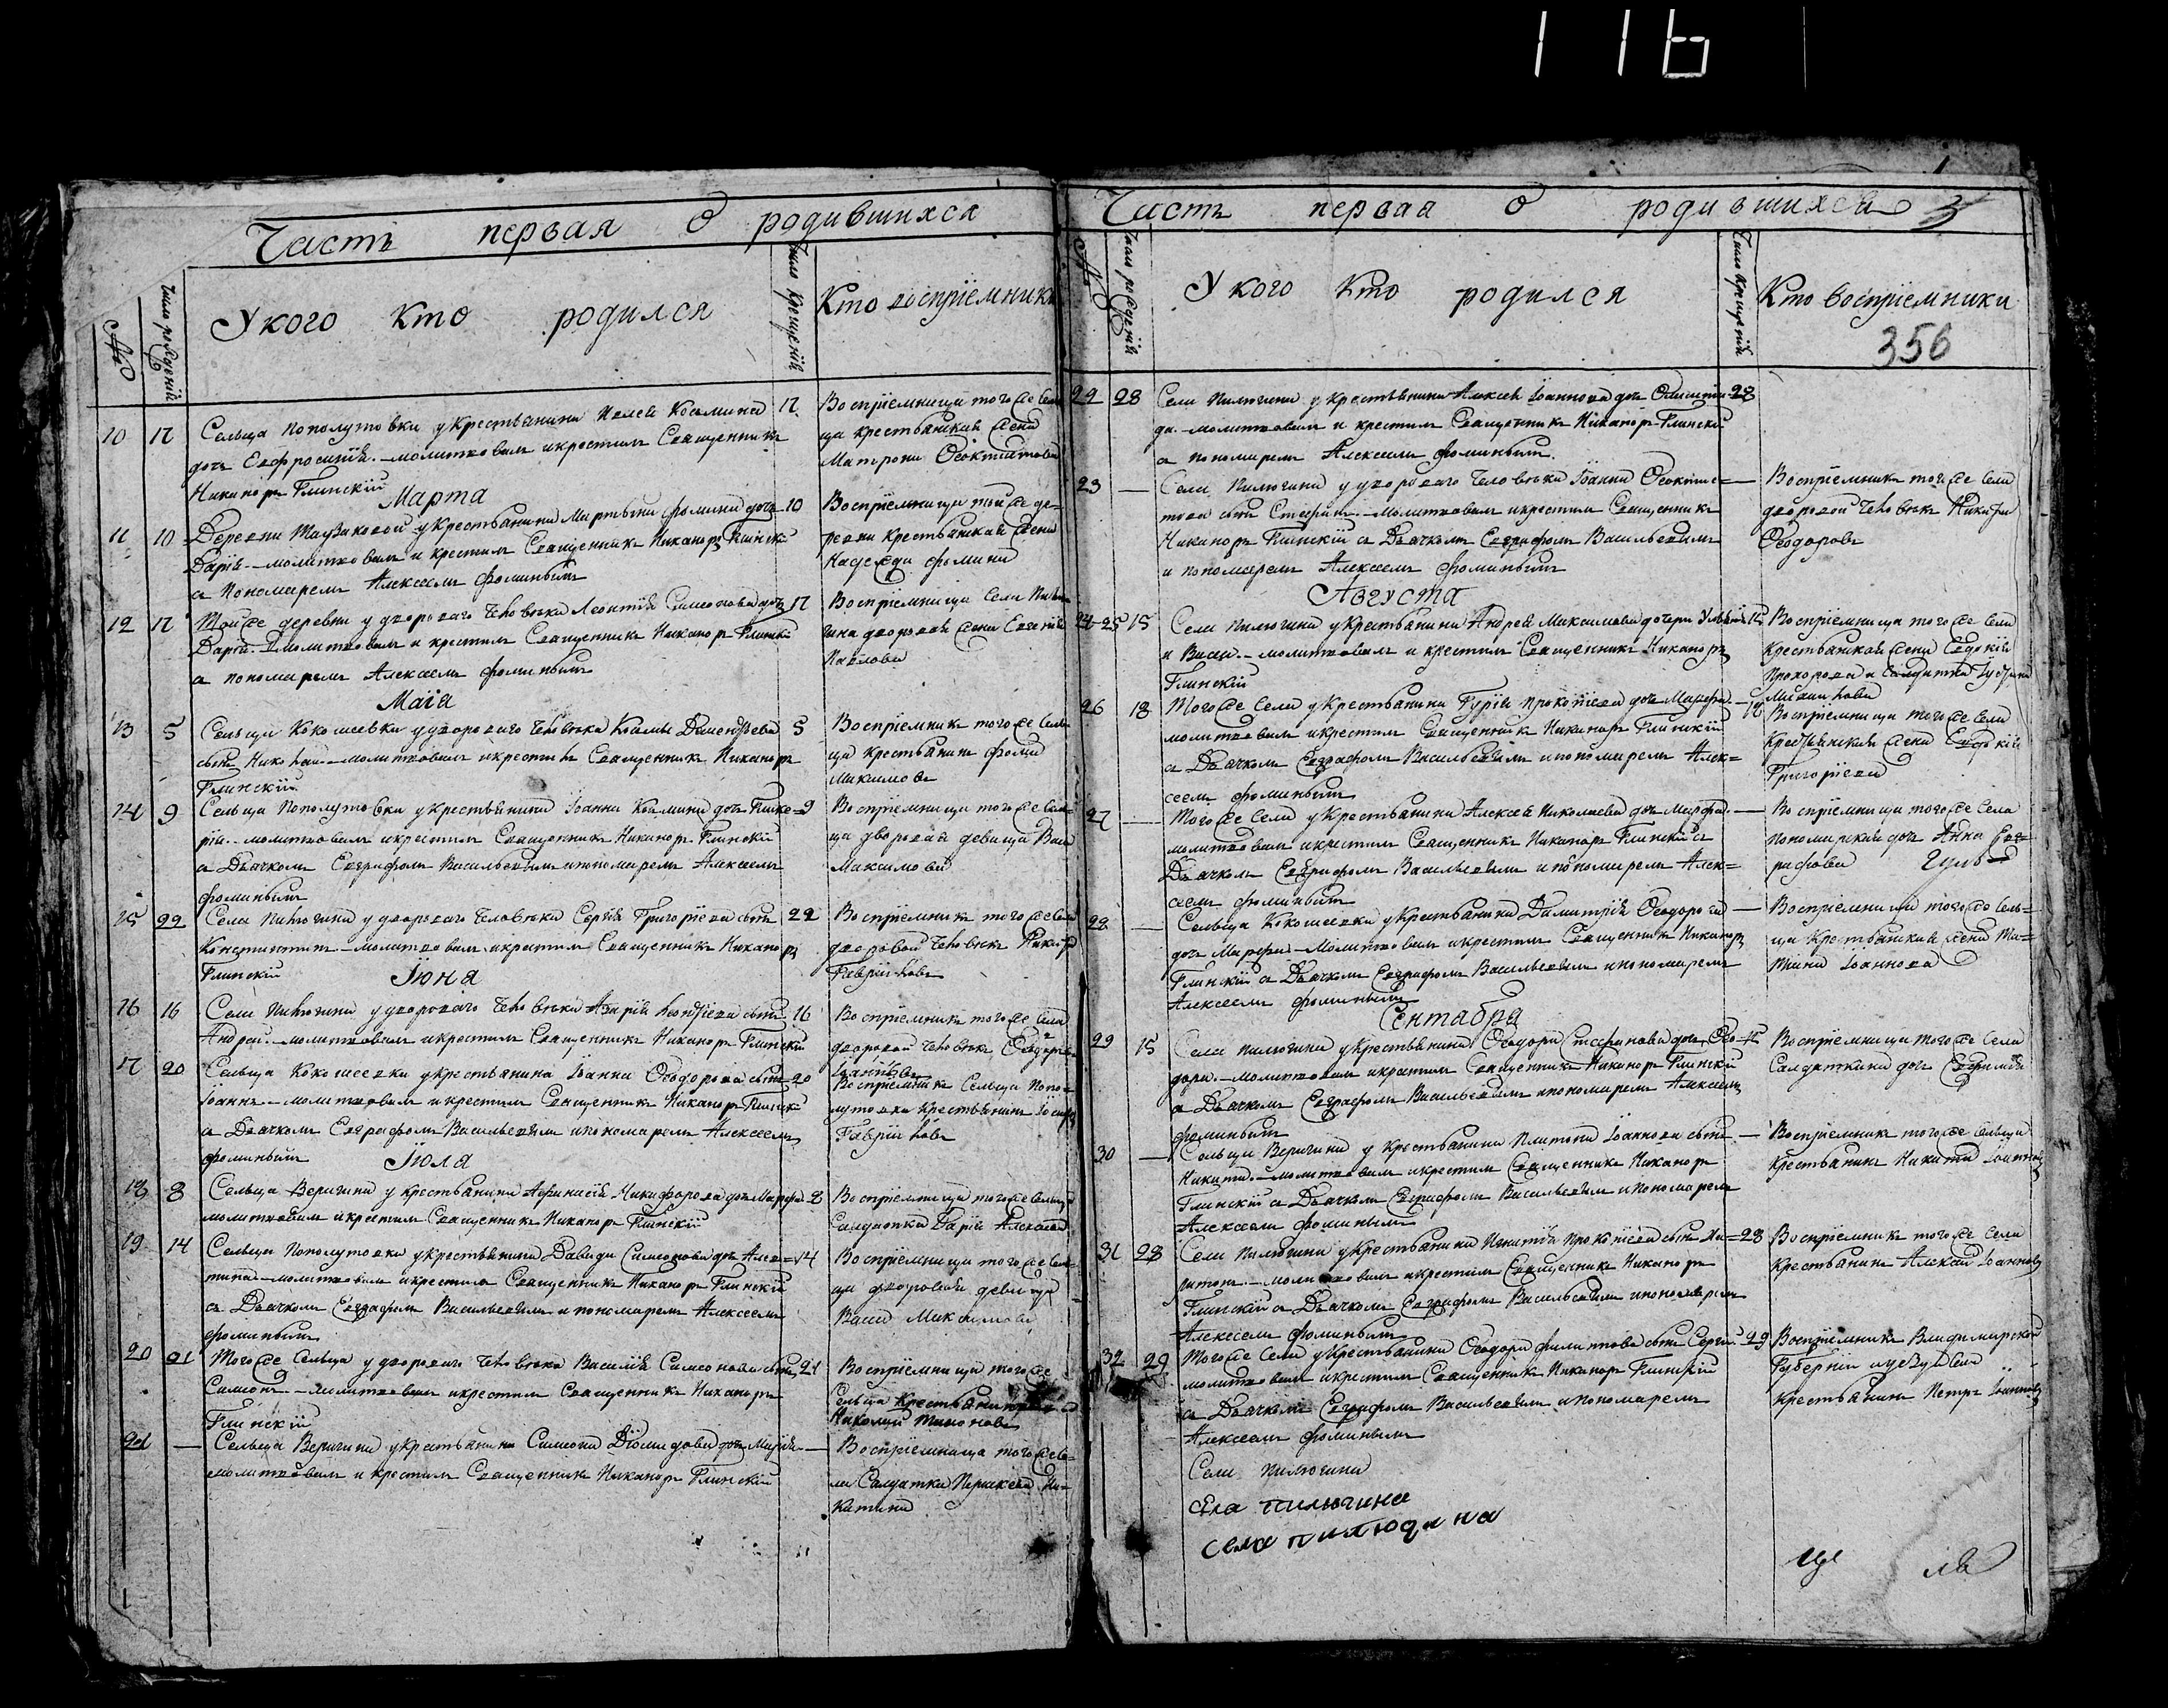 116
Часть первая о родившихся
№
Число рождений
У кого кто родился
Число крещений
Кто восприемники
10 17 Сельца Пополутовки у крестьянина Космина 17
дочь Евфросинія. – молитвовалъ и крестилъ Священникъ
Никаноръ Глинскій
Восприемница того же сель
ца крестьянская жена
Матрона
Марта
11 10 Деревни у крестьянина Мартына Фомина дочь 10
Дарія. – молитвовалъ и крестилъ Священникъ Никаноръ Глинскій
с Пономаремъ Алексеемъ Фоминымъ
Восприемница той же де-
ревни крестьянская жена
Надежда Фомина
12 17 Той же деревни у двороваго человека Леонтія Симеонова дочь 17
Дарія. – молитвовалъ и крестилъ Священникъ Никаноръ Глинскій
с пономаремъ Алексеемъ Фоминымъ
Восприемница села Пилю
гина дворовая жена
Павлова
Маія
13 5 Сельца Кокошеевки у двороваго человека Козмы Дементьева 5
сынъ Николай – молитвовалъ и крестилъ Священникъ Никаноръ
Глинскій
Восприемникъ того же сель
ца крестьянинъ Фома
Максимовъ
14 9 Сельца Пополутовки у крестьянина Іоанна Козмина дочь Глике= 9
рія. – молитвовалъ и крестилъ Священникъ Никаноръ Глинскій
с Дьячкомъ Евграфомъ Васильевымъ и пономаремъ Алексеемъ
Фоминымъ
Восприемница того же сель-
ца дворовая девица Васса
Максимова
15 22 Села Пилюгина у двороваго человека Сергія Григоріева сынъ 22
Константинъ – молитвовалъ и крестилъ Священникъ Никаноръ
Глинскій
Восприемникъ того же села
дворовой человекъ
Гавріиловъ
Іюня
16 16 Села Пилюгина у двороваго человека Азарія Леонтіева сынъ 16
Андрей. – молитвовалъ и крестилъ Священникъ Никаноръ Глинскій
Восприемникъ того же села
дворовой человекъ Феодоръ
17 20 Сельца Кокошеевки у крестьянина Іоанна Феодорова сынъ 20
Іоаннъ – молитвовалъ и крестилъ Священникъ Никаноръ Глинскій
с Дьячкомъ Евграфомъ Васильевымъ и пономаремъ Алексеемъ
Фоминымъ
Восприемникъ Сельца Попо-
лутовки крестьянинъ Іосифъ
Гавріиловъ
Іюля
18 8 Сельца Веригина у крестьянина Афанасія Никифорова дочь Марфа 8
молитвовалъ и крестилъ Священникъ Никаноръ Глинскій
Восприемница того же сельца
Салдатка Дарія
19 14 Сельца Пополутовки у крестьянина Давида Симеонова дочь Алев= 14
тина – молитвовалъ и крестилъ Священникъ Никаноръ Глинскій
с Дьячкомъ Евграфомъ Васильевымъ и пономаремъ Алексеемъ
Фоминымъ
Восприемница того же сель-
ца дворовая девица
Васса Максимова
20 21 Того же Сельца у двороваго человека Василія Симеонова сынъ 21
Симеонъ – молитвовалъ и крестилъ Священникъ Никаноръ
Глинскій
Восприемница того же
Сельца крестьянинъ
Николай
21 — Сельца Веригина у крестьянина Симона Діомидова дочь Марія —
молитвовалъ и крестилъ Священникъ Никаноръ Глинскій
Восприемница того же се-
ла Салдатка Параскева Ни-
китина
Часть первая о родившихся 3
№
Число рожденій
У кого кто родился
Число крещеній
Кто восприемники
356
22 28 Села Пилюгина у крестьянина Алексея Іоаннова дочь Олимпіа- 28
да. – молитвовалъ и крестилъ Священникъ Никаноръ Глинскій
с пономаремъ Алексеемъ Фоминымъ.
23 — Села Пилюгина у двороваго человека Іоанна Феоктис= —
това сынъ Стефанъ. – молитвовалъ и крестилъ Священникъ
Никаноръ Глинскій с Дьячкомъ Евграфомъ Васильевымъ
и пономаремъ Алексеемъ Фоминымъ
Восприемникъ того же села
дворовой человекъ
Феодоровъ
Августа
24-25 15 Села Пилюгина у крестьянина Андрея Максимова дочери Ульянія 15
и Васса. – молитвовалъ и крестилъ Священникъ Никаноръ
Глинскій
Восприемница того же села
крестьянская жена Евдокія
Прохорова и Салдатка
26 18 Того же Села у крестьянина Гурія Прокопіева дочь Марфа. – 18
молитвовалъ и крестилъ Священникъ Никаноръ Глинскій
с Дьячкомъ Евграфомъ Васильевымъ и пономаремъ Алек=
сеемъ Фоминымъ
Восприемница того же села
Крестьянская жена Евдокія
Григоріева
27 — Того же Села у крестьянина Алексея Николаева дочь Марфа. —
молитвовалъ и крестилъ Священникъ Никаноръ Глинскій с
Дьячкомъ Евграфомъ Васильевымъ и пономаремъ Алек=
сеемъ Фоминымъ
Восприемница того же Села
пономарская дочь Анна Евг-
рафова
28 — Сельца Кокошеевки у крестьянина Димитрія Феодорова —
дочь Марфа. – молитвовалъ и крестилъ Священникъ Никаноръ
Глинскій с Дьячкомъ Евграфомъ Васильевымъ и пономаремъ
Алексеемъ Фоминымъ
Восприемница того же сель=
ца Крестьянская жена Та=
тіана Іоаннова
Сентабра
29 15 Села Пилюгина у крестьянина Феодора Стефанова дочь Фео- 15
дора. – молитвовалъ и крестилъ Священникъ Никаноръ Глинскій
с Дьячкомъ Евграфомъ Васильевымъ и пономаремъ Алексеемъ
Фоминымъ
Восприемница того же села
Салдаткина дочь
30 — Сельца Веригина у крестьянина Платона Іоаннова сынъ —
Никита. – молитвовалъ и крестилъ Священникъ Никаноръ
Глинскій с Дьячкомъ Евграфомъ Васильевымъ и пономаремъ
Алексеемъ Фоминымъ
Восприемникъ того же сельца
крестьянинъ Никита Іоанновъ
31 28 Села Пилюгина у крестьянина Игнатія Прокопіева сынъ Ха= 28
ритонъ – молитвовалъ и крестилъ Священникъ Никаноръ
Глинскій с Дьячкомъ Евграфомъ Васильевымъ и пономаремъ
Алексеемъ Фоминымъ
Восприемникъ того же села
крестьянинъ Алексей Іоанновъ
32 29 Того же Села у крестьянина Феодора Филиппова сынъ Сергій 29
молитвовалъ и крестилъ Священникъ Никаноръ Глинскій
с Дьячкомъ Евграфомъ Васильевымъ и пономаремъ
Алексеемъ Фоминымъ
Восприемникъ Владимирской
Губерніи
крестьянинъ Петръ Іоанновъ
Села Пилюгина
села пилюгина
села пилюгина